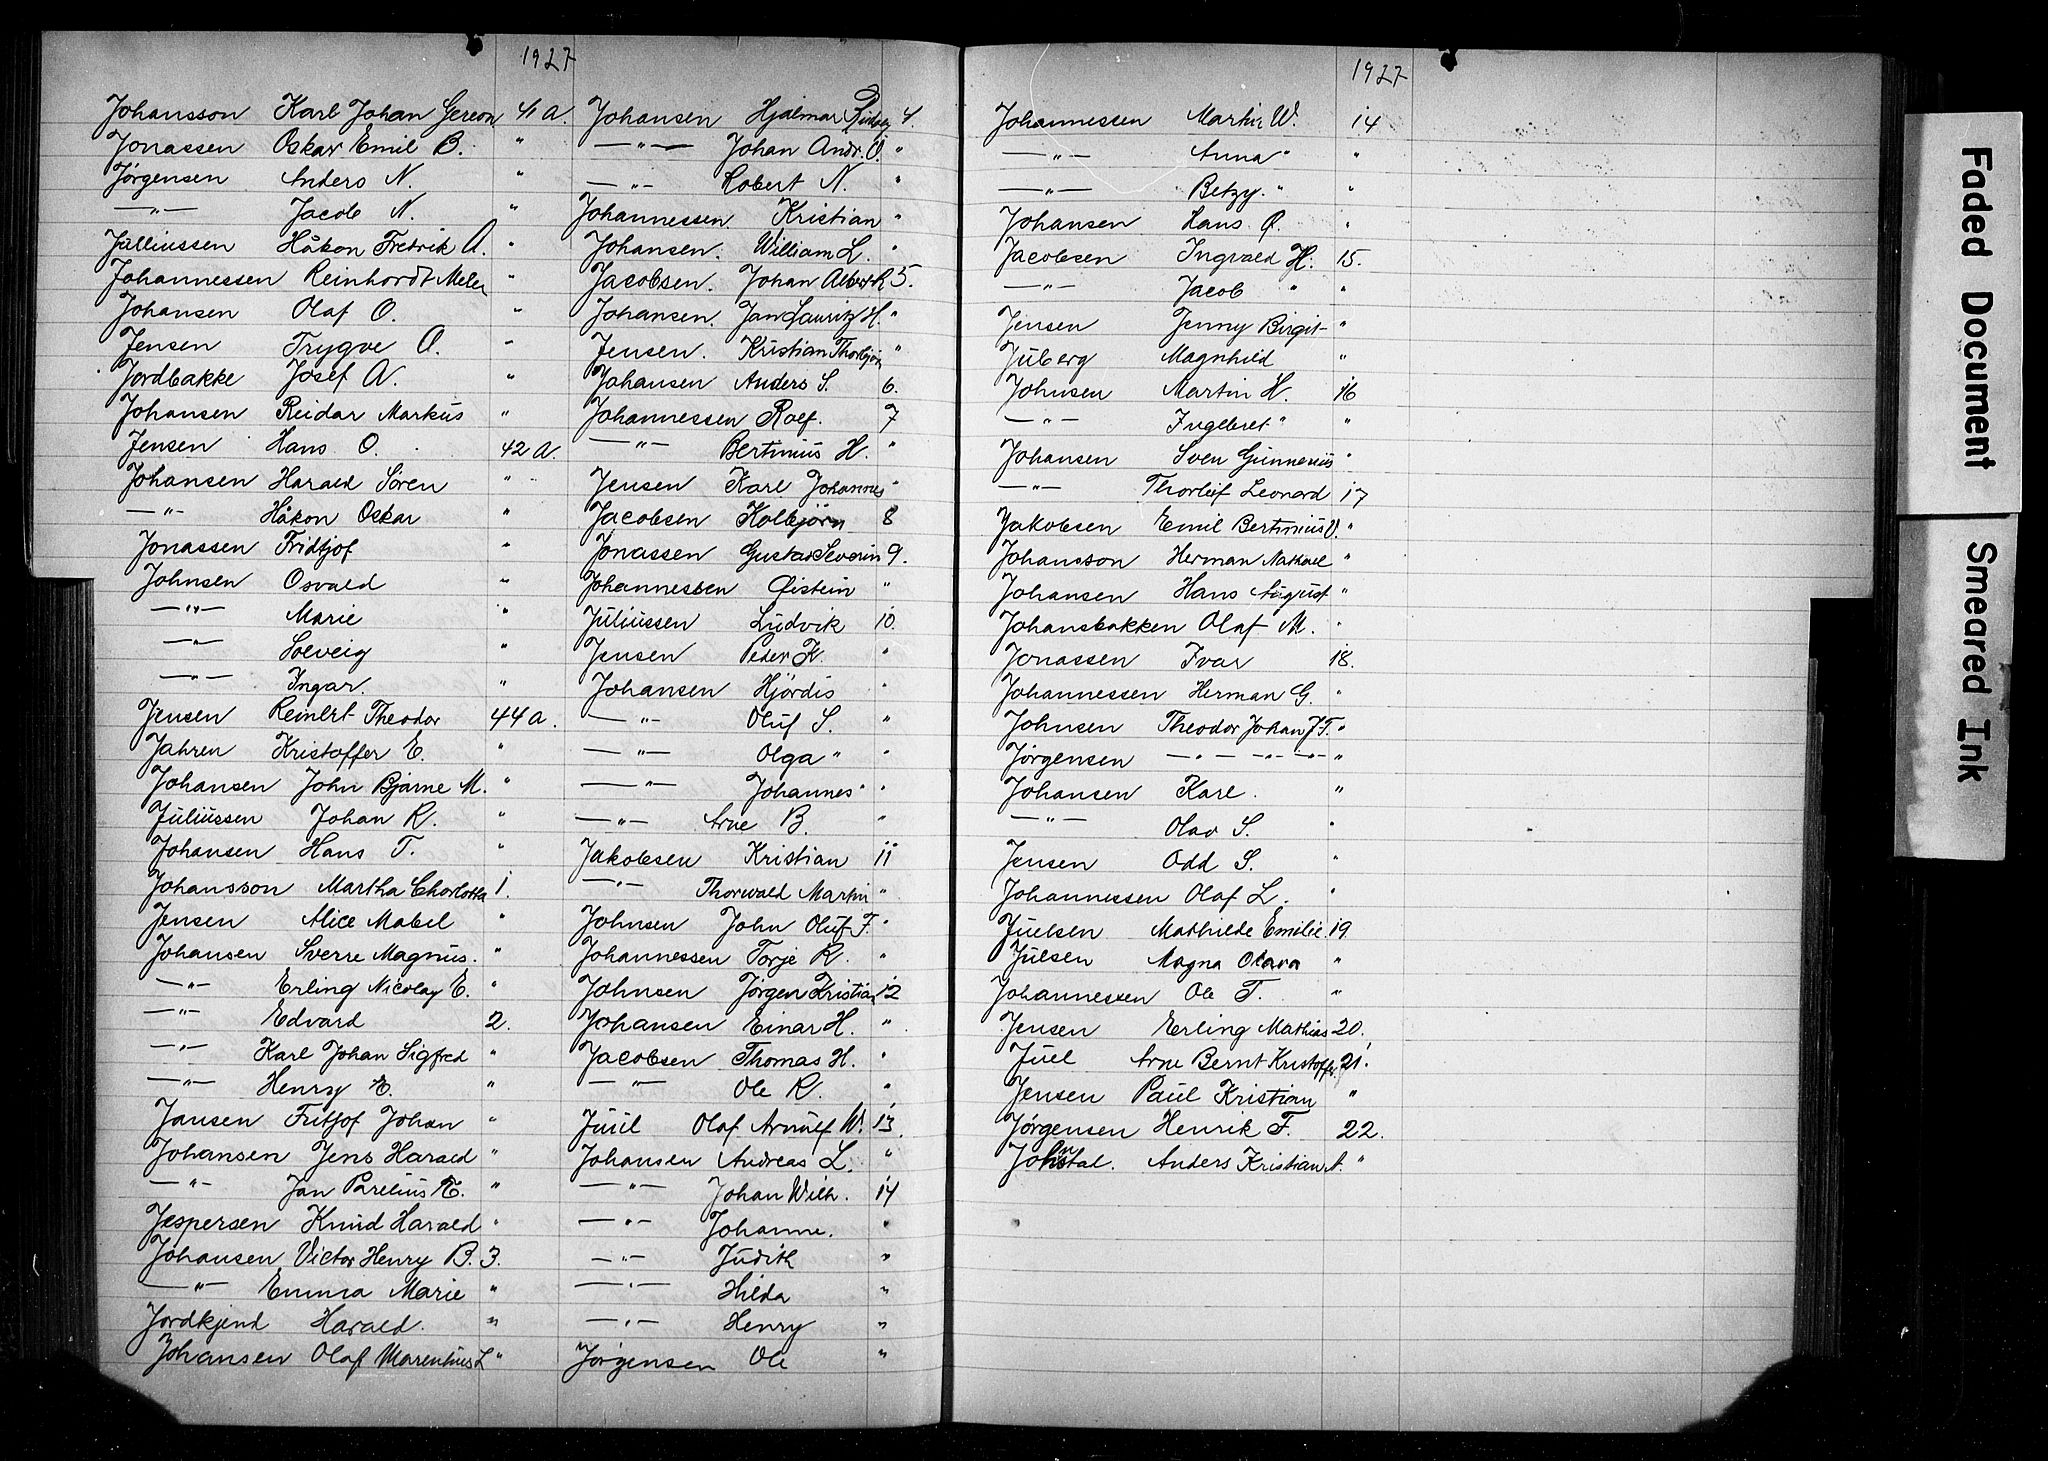 1927
Johansson Karl Johan Gereon 41 A.
Jonassen Oskar Emil B. "
Jørgensen Anders N. "
—"— Jacob N. "
Julliussen Håkon Fredrik A. "
Johannessen Reinhordt "
Johansen Olaf O. "
Jensen Trygve O. "
Jordbakke Josef A. "
Johansen Reidar Markus "
Jensen Hans O. 42 A.
Johansen Harald Sören "
—"— Håkon Oskar "
Jonassen Fridtjof "
Johnsen Osvald "
—"— Marie "
—"— Solveig "
—"— Ingar. "
Jensen Reinert Theodor 44 a.
Jahren Kristoffer E. "
Johansen John Bjarne M. "
Juliussen Johan R. "
Johansen Hans T. "
Johansson Martha Charlotta 1.
Jensen Alice Mabel "
Johansen Sverre Magnus. "
—"— Erling Nicolay E. "
—"— Edvard 2.
—"— Karl Johan Sigfred "
—"— Henry E. "
Jansen Fritjof Johan "
Johansen Jens Harald "
—"— Jan Parelius E. "
Jespersen Knud Harald "
Johansen Victor Henry B. 3.
—"— Emma Marie "
Jordkjend Harald. "
Johansen Olaf Marentius L "
Johansen Hjalmar 4.
—"— Johan Andr. O. "
—"— Robert N. "
Johannessen. Kristian "
Johansen. William L. "
Jacobsen. Johan Albert R 5.
Johansen. Jan Lauritz H. "
Jensen. Kristian Thorbjørn "
Johansen Anders S. 6.
Johannessen Rolf. 7
—"— Bertinius H. "
Jensen Karl Johannes "
Jacobsen Kolbjörn 8
Jonassen Gustav Severin 9.
Johannessen Øistein "
Juliussen Ludvik 10.
Jensen Peder K. "
Johansen Hjördis "
—"— Oluf S. "
—"— Olga " "
—"— Johannes " "
—"— Arne B. "
Jakobsen Kristian 11
—"— Thorwald Martin "
Johnsen John Oluf F. "
Johannessen Torje R. "
Johnsen Jørgen Kristian 12
Johansen Einar H. "
Jacobsen Thomas H. "
—"— Ole R. "
Juul Olaf Arnulf W. 13.
Johansen Andreas L. "
—"— Johan Wilh. 14
—"— Johanne. "
—"— Judith "
—"— Hilda "
—"— Henry "
Jørgensen Ole "
1927
Johannessen Martin W. 14
—"— Anna " "
—"— Betzy. " "
Johansen Hans O. "
Jacobsen Ingvald H. 15.
—"— Jacob " "
Jensen Jenny Birgit "
Juberg Magnhild "
Johnsen Martin H. 16
—"— Ingebret " "
Johansen Sven Gunnerius "
—"— Thorleif Leonard 17
Jakobsen Emil Bertinius O. "
Johansson Herman Nathael "
Johansen Hans August "
Johansbakken Olaf M. "
Jonassen Ivar 18.
Johannessen Herman G. "
Johnsen Theodor Johan J F. "
Jørgensen —"— —"— —"— "
Johansen Karl. "
—"— Olav S. "
Jensen Odd S. "
Johannessen Olaf L. "
Juelsen Mathilde Emilie 19.
Julsen Magna Olava "
Johannessen Ole T. "
Jensen Erling Mathias 20.
Juel Arne Bernt Kristoffer 21.
Jensen Paul Kristian "
Jørgensen Henrik F. 22.
Anders Kristian A. "
Faded Document
Smeared Ink